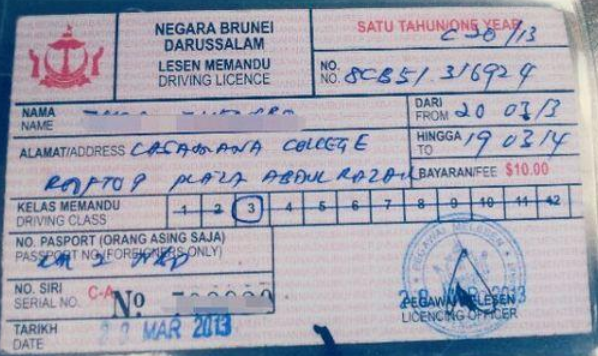 NEGARA BRUNEI
DARUSSALAM
LESEN MEMANDU
DRIVING LICENCE
SATU TAHUN/ONE YEAR
C30/13
NO.
NO. 8CB51 316924
NAMA
NAME
DARI
FROM 20 03 13
ALAMAT/ADDRESS COLLEGE
HINGGA
TO 19 03 14
PLAZA ABDUL RAZAK
BAYARAN/FEE $10.00
KELAS MEMANDU
DRIVING CLASS
1 2 3 4 5 6 7 8 9 10 11 12
NO. PASPORT (ORANG ASING SAJA)
PASSPORT NO. (FOREIGNERS ONLY)
NO. SIRI
SERIAL NO. C-A No
TARIKH
DATE
20 MAR 2013
PEGAWAI MELESEN
20 MAR 2013
PEGAWAI MELESEN
LICENCING OFFICER